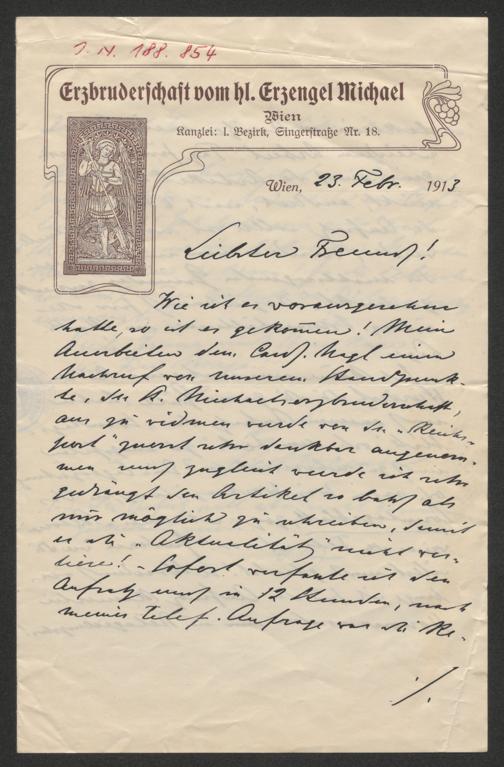 J. N. 188.854
Erzbruderschaft vom hl. Erzengel Michael
Wien
Kanzlei: I. Bezirk, Singerstraße Nr. 18.
Wien, 23. Febr. 1913
Liebster Freund!
Wie ich es vorausgesehen
hatte, so ist es gekom̅en! Mein
Anerbieten dem Card. Nagl einen
Nachruf von unserem Standpunk-
te, der St. Michaelserzbruderschaft,
aus zu widmen wurde von der „Reichs-
post" zuerst sehr dankbar angenom-
men und zugleich wurde ich sehr
gedrängt den Artikel so bald als
nur möglich zu schreiben, damit
er die „Aktualität" nicht ver-
liere! - Sofort verfaßte ich den
Aufsatz und in 12 Stunden, nach
meiner telef. Anfrage war die Re-
./.